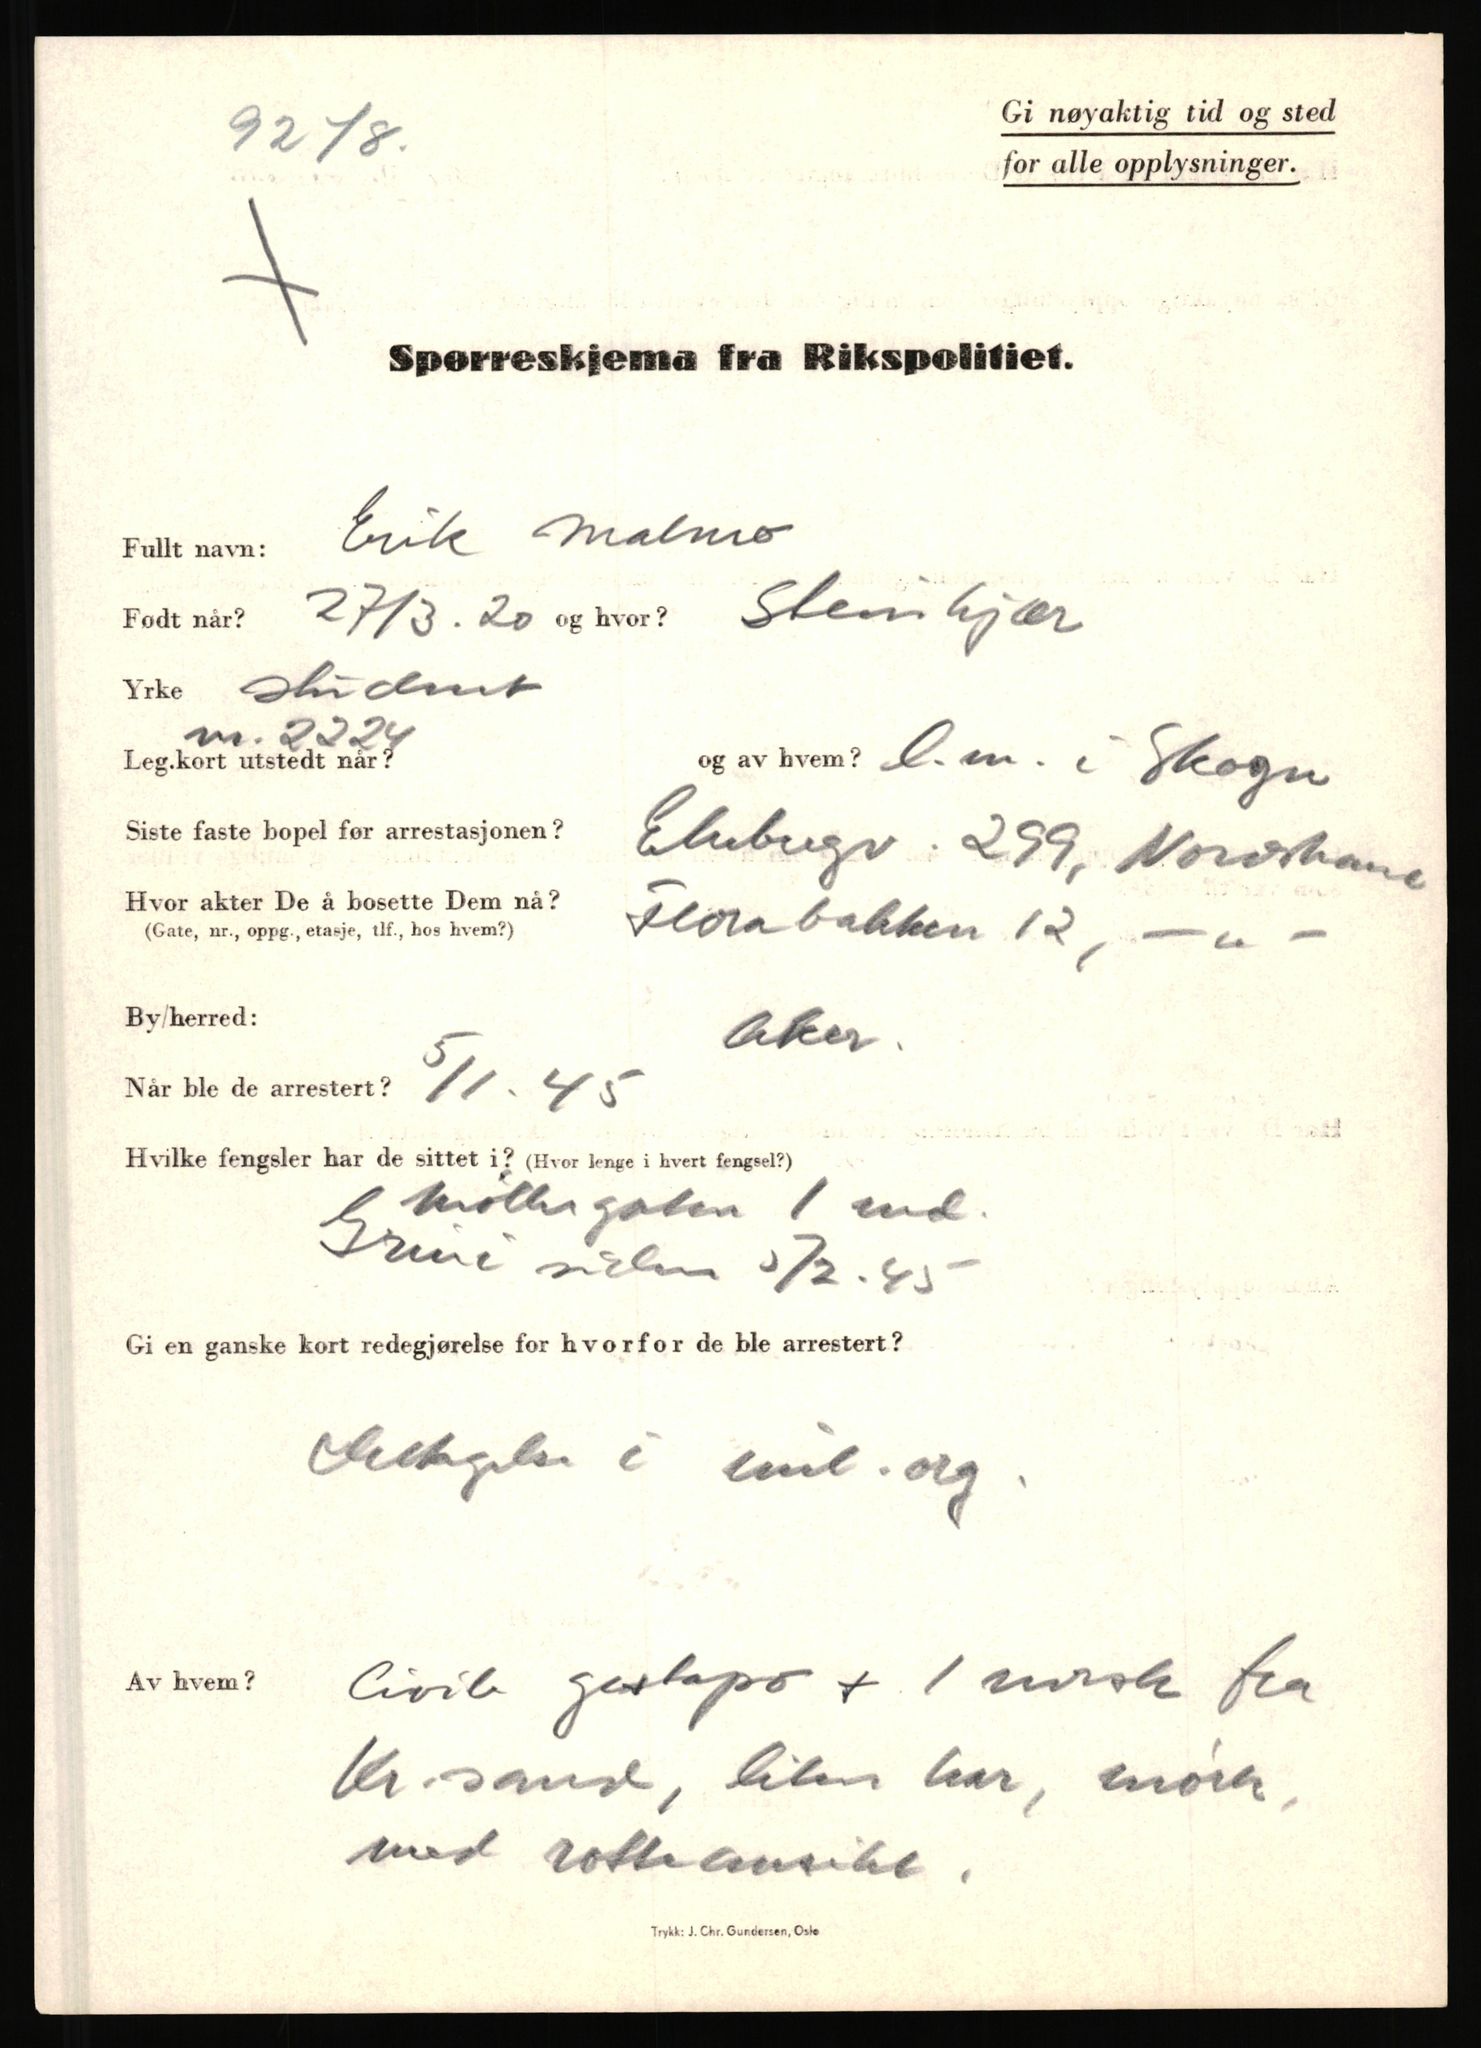 9278.
Gi nøyaktig tid og sted
for alle opplysninger.
Spørreskjema fra Rikspolitiet.
Fullt navn: Erik Malmo
Født når? 27/3.20 og hvor? Steinkjær
Yrke student
nr. 2224
Leg.kort utstedt når? og av hvem? l.m. i Skogn
Siste faste bopel før arrestasjonen? 299, Nordstrand
Hvor akter De å bosette Dem nå? Florabakken 12, — " —
(Gate, nr., oppg., etasje, tlf., hos hvem?)
By/herred: Aker.
Når ble de arrestert? 5/1.45
Hvilke fengsler har de sittet i? (Hvor lenge i hvert fengsel?)
Møllergaten 1 md.
Grini siden 5/2.45
Gi en ganske kort redegjørelse for hvorfor de ble arrestert?
Deltagelse i mil.org.
Av hvem? Civile gestapo + 1 norsk fra
Kr.sand, liten kar, mørk,
med rotteansikt.
Trykk: J. Chr. Gundersen, Oslo